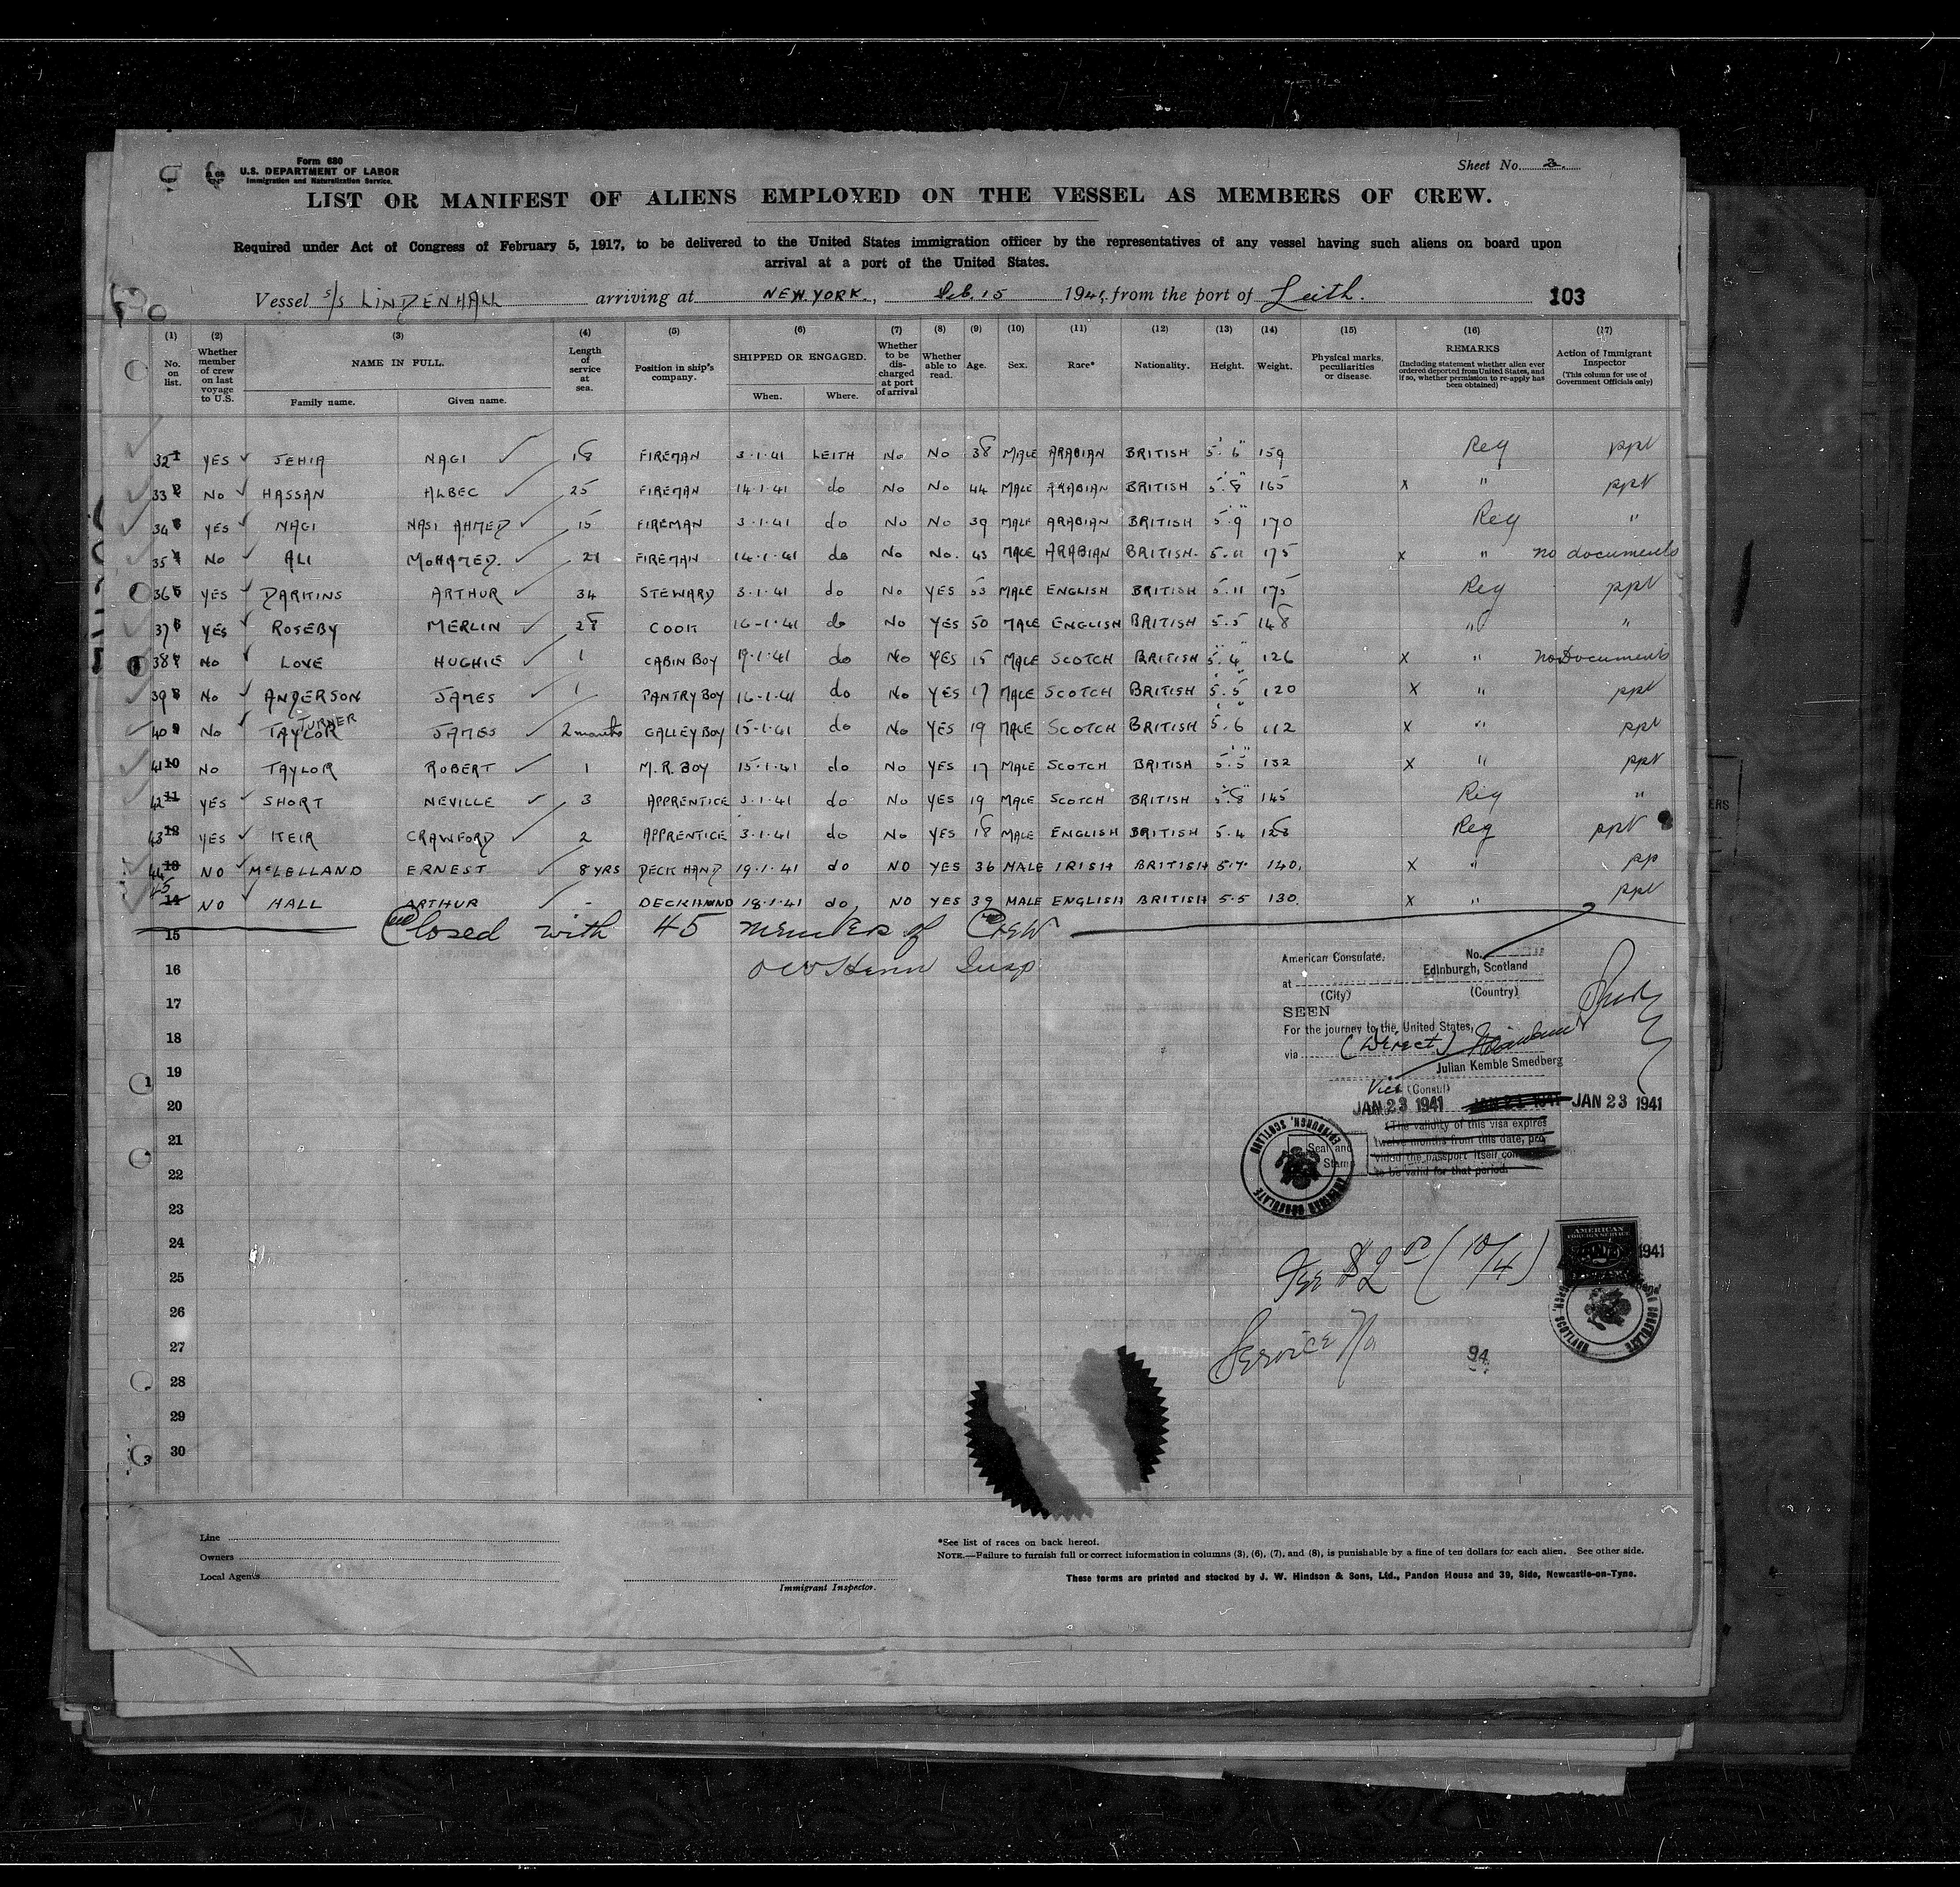 Form 680
U.S. DEPARTMENT OF LABOR
Immigration and Naturalization Service.
Sheet No. 3.
LIST OR MANIFEST OF ALIENS EMPLOYED ON THE VESSEL AS MEMBERS OF CREW.
Required under Act of Congress of February 5, 1917, to be delivered to the United States immigration officer by the representatives of any vessel having such aliens on board upon
arrival at a port of the United States.
Vessel s/s LINDENHALL arriving at NEW YORK., Feb. 15 1941, from the port of Leith. 103
(1) (2) (3) (4) (5) (6) (7) (8) (9) (10) (11) (12) (13) (14) (15) (16) (17)
No. on list. Whether member of crew on last voyage to U.S. NAME IN FULL. Family name. Given name. Length of service at sea. Position in ship's company. SHIPPED OR ENGAGED. When. Where. Whether to be discharged at port of arrival Whether able to read. Age. Sex. Rare* Nationality. Height. Weight. Physical marks, peculiarities or disease. REMARKS (Including statement whether alien ever ordered deported from United States, and if so, whether permission to re-apply has been obtained) Action of Immigrant Inspector (This column for use of Government Officials only)
32 1 YES JEHIA NAGI 18 FIREMAN 3·1·41 LEITH No No 38 MALE ARABIAN BRITISH 5' 6" 159 Reg ppt
33 2 No HASSAN ALBEC 25 FIREMAN 14·1·41 do No No 44 MALE ARABIAN BRITISH 5' 8" 165 x " ppt
34 3 YES NAGI NASI AHMED 15 FIREMAN 3·1·41 do No No 39 MALE ARABIAN BRITISH 5' 9" 170 Reg "
35 4 No ALI MOHAMED. 21 FIREMAN 14·1·41 do No No. 43 MALE ARABIAN BRITISH. 5·11 175 x " no documents
36 5 YES DARKINS ARTHUR 34 STEWARD 3·1·41 do No YES 53 MALE ENGLISH BRITISH 5·11 175 Reg ppt
37 6 YES ROSEBY MERLIN 28 COOK 16-1·41 do No YES 50 MALE ENGLISH BRITISH 5·5 148 " "
38 7 No LOVE HUGHIE 1 CABIN BOY 19·1·41 do No YES 15 MALE SCOTCH BRITISH 5' 4" 126 x " no Documents
39 8 No ANDERSON JAMES 1 PANTRY BOY 16-1·41 do No YES 17 MALE SCOTCH BRITISH 5' 5" 120 x " ppt
TURNER
40 9 No TAYLOR JAMES 2 months GALLEY BOY 15·1·41 do No YES 19 MALE SCOTCH BRITISH 5' 6 112 x " ppt
41 10 No TAYLOR ROBERT 1 M.R. BOY 15·1·41 do No YES 17 MALE SCOTCH BRITISH 5' 5" 132 x " ppt
42 11 YES SHORT NEVILLE 3 APPRENTICE 3·1·41 do No YES 19 MALE SCOTCH BRITISH 5' 8" 145 Reg "
43 12 YES KEIR CRAWFORD 2 APPRENTICE 3·1·41 do No YES 18 MALE ENGLISH BRITISH 5·4 128 Reg ppt
44 13 NO McLELLAND ERNEST 8 YRS DECK HAND 19·1·41 do NO YES 36 MALE IRISH BRITISH 5·7· 140. x " pp
45 14 NO HALL ARTHUR - DECKHAND 18·1·41 do NO YES 39 MALE ENGLISH BRITISH 5·5 130. x " ppt
Closed with 45 members of Crew
15
16
Insp
17
18
19
20
21
22
23
24
25
26
27
28
29
30
American Consulate. No.
Edinburgh, Scotland
at
(City) (Country)
SEEN
For the journey to the United States,
via (Direct)
Julian Kemble Smedberg
Vice (Consul)
JAN 23 1941 JAN 21 1941 JAN 23 1941
(The validity of this visa expires
twelve months from this date, pro
vided the passport itself con
to be valid for that period.
Seal and
Stamp
EDINBURGH, SCOTLAND
AMERICAN CONSULATE
Fee $2.00 (10/4)
AMERICAN
FOREIGN SERVICE
1941
Service No 94
1
3
Line
Owners
Local Agents
Immigrant Inspector.
*See list of races on back hereof.
NOTE.—Failure to furnish full or correct information in columns (3), (6), (7), and (8), is punishable by a fine of ten dollars for each alien. See other side.
These forms are printed and stocked by J. W. Hindson & Sons, Ltd., Pandon House and 39, Side, Newcastle-on-Tyne.